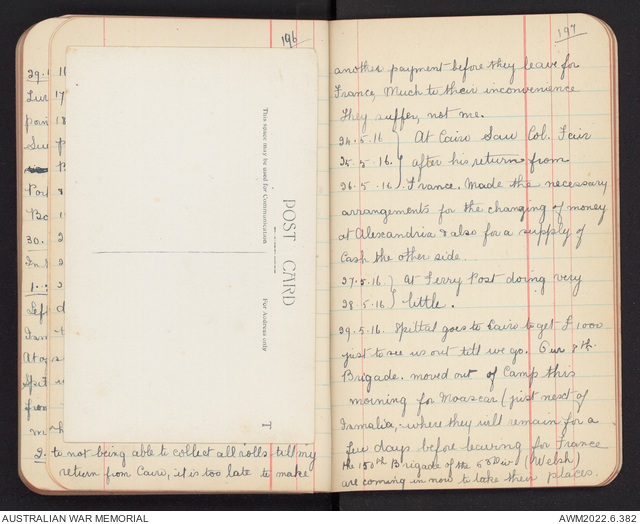 196
29.
11
17
18
30.
POST CARD
This space may be used for Communication
For Address only
T
to not being able to collect all rolls till my
return from Cairo, it is too late to make
197
another payment before they leave for
France, Much to their inconvenience
They suffer, not me.
24.5.16 } At Cairo Saw Col. Fair
25.5.16. } after his return from
26.5.16 } France. Made the necessary
arrangements for the changing of money
at Alexandria & also for a supply of
Cash the other side.
27.5.16 } At Ferry Post doing very
28.5.16 } little.
29.5.16. Spittal goes to Cairo to get £1000
just to see us out till we go. Our 8th.
Brigade. moved out of Camp this
morning for Moascar (just next of
Ismalia, where they will remain for a
few days before leaving for France
the 150th Brigade of the 53 Div. (Welsh)
are coming in now to take their places.
AUSTRALIAN WAR MEMORIAL
AWM2022.6.382